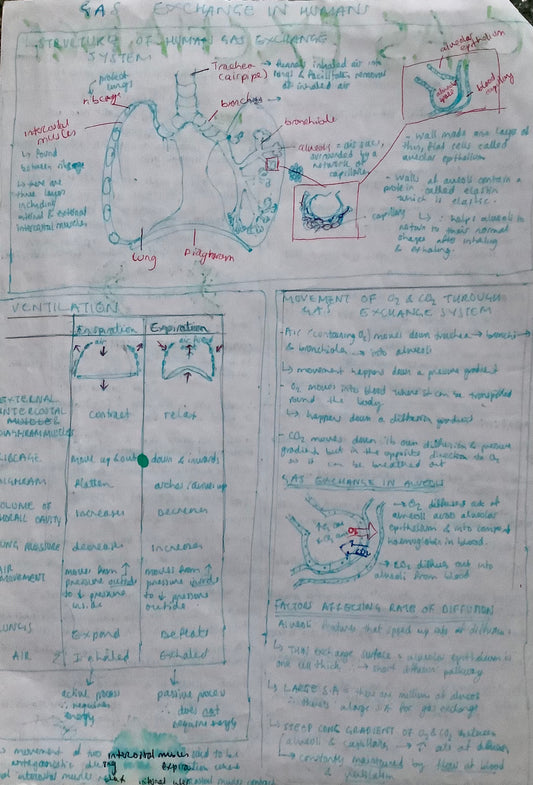 GAS EXCHANGE IN HUMANS
STRUCTURE OF HUMAN GAS EXCHANGE
SYSTEM
↳ protect
lungs
ribcage
Trachea
(airpipe)
→ inhaled air into
lungs & facilitates removal
of inhaled air
bronchus →
bronchiole
intercostal
muscles
↳ found
between ribs
↳ there are
three layers
including
internal & external
intercostal muscles
alveolus = air sacs,
surrounded by a
network of
capillaries
Lung
Diaphragm
capillary
alveolar epithelium
alveolar
space
blood
capillary
- Wall made one layer of
thin, flat cells called
alveolar epithelium
- Walls of alveoli contain a
protein called elastin
which is elastic.
↳ : helps alveoli to
return to their normal
shapes after inhaling
& exhaling.
VENTILATION
Inspiration Expiration
air air
EXTERNAL
INTERCOSTAL
MUSCLES
DIAPHRAGM MUSCLES
contract relax
RIBCAGE Move up & out down & inwards
flatten arches / curves up
VOLUME OF
CAVITY
Increases Decreases
LUNG PRESSURE decreases Increases
AIR
MOVEMENT
moves from ↑
pressure outside
to ↓ pressure
inside
moves from ↑
pressure inside
to ↓ pressure
outside
LUNGS Expand Deflate
AIR Inhaled Exhaled
active process
∴ requires
energy
passive process
∴ does not
require energy
movement of two intercostal muscles said to be
antagonistic during expiration where
intercostal muscles relax internal intercostal muscles contract
MOVEMENT OF O₂ & CO₂ THROUGH
GAS EXCHANGE SYSTEM
- Air (containing O₂) moves down trachea → bronchi →
& bronchiole → into alveoli
↳ movement happens down a pressure gradient
- O₂ moves into blood where it can be transported
round the body
↳ happens down a diffusion gradient
- CO₂ moves down its own diffusion & pressure
gradient but in the opposite direction to O₂
so it can be breathed out
GAS EXCHANGE IN ALVEOLI
O₂
CO₂
→ O₂ diffuses out of
alveoli across alveolar
epithelium & into
haemoglobin in blood.
→ CO₂ diffuses out into
alveoli from blood
FACTORS AFFECTING RATE OF DIFFUSION
Alveoli features that speed up rate of diffusion:
↳ THIN exchange surface = alveolar epithelium is
one cell thick. ∴ → short diffusion pathway
↳ LARGE S.A = there are millions of alveoli
∴ there's a large S.A for gas exchange
↳ STEEP CONC GRADIENT OF O₂ & CO₂ between
alveoli & capillaries → ↑ rate of diffusion
↳ constantly maintained by flow of blood
& ventilation